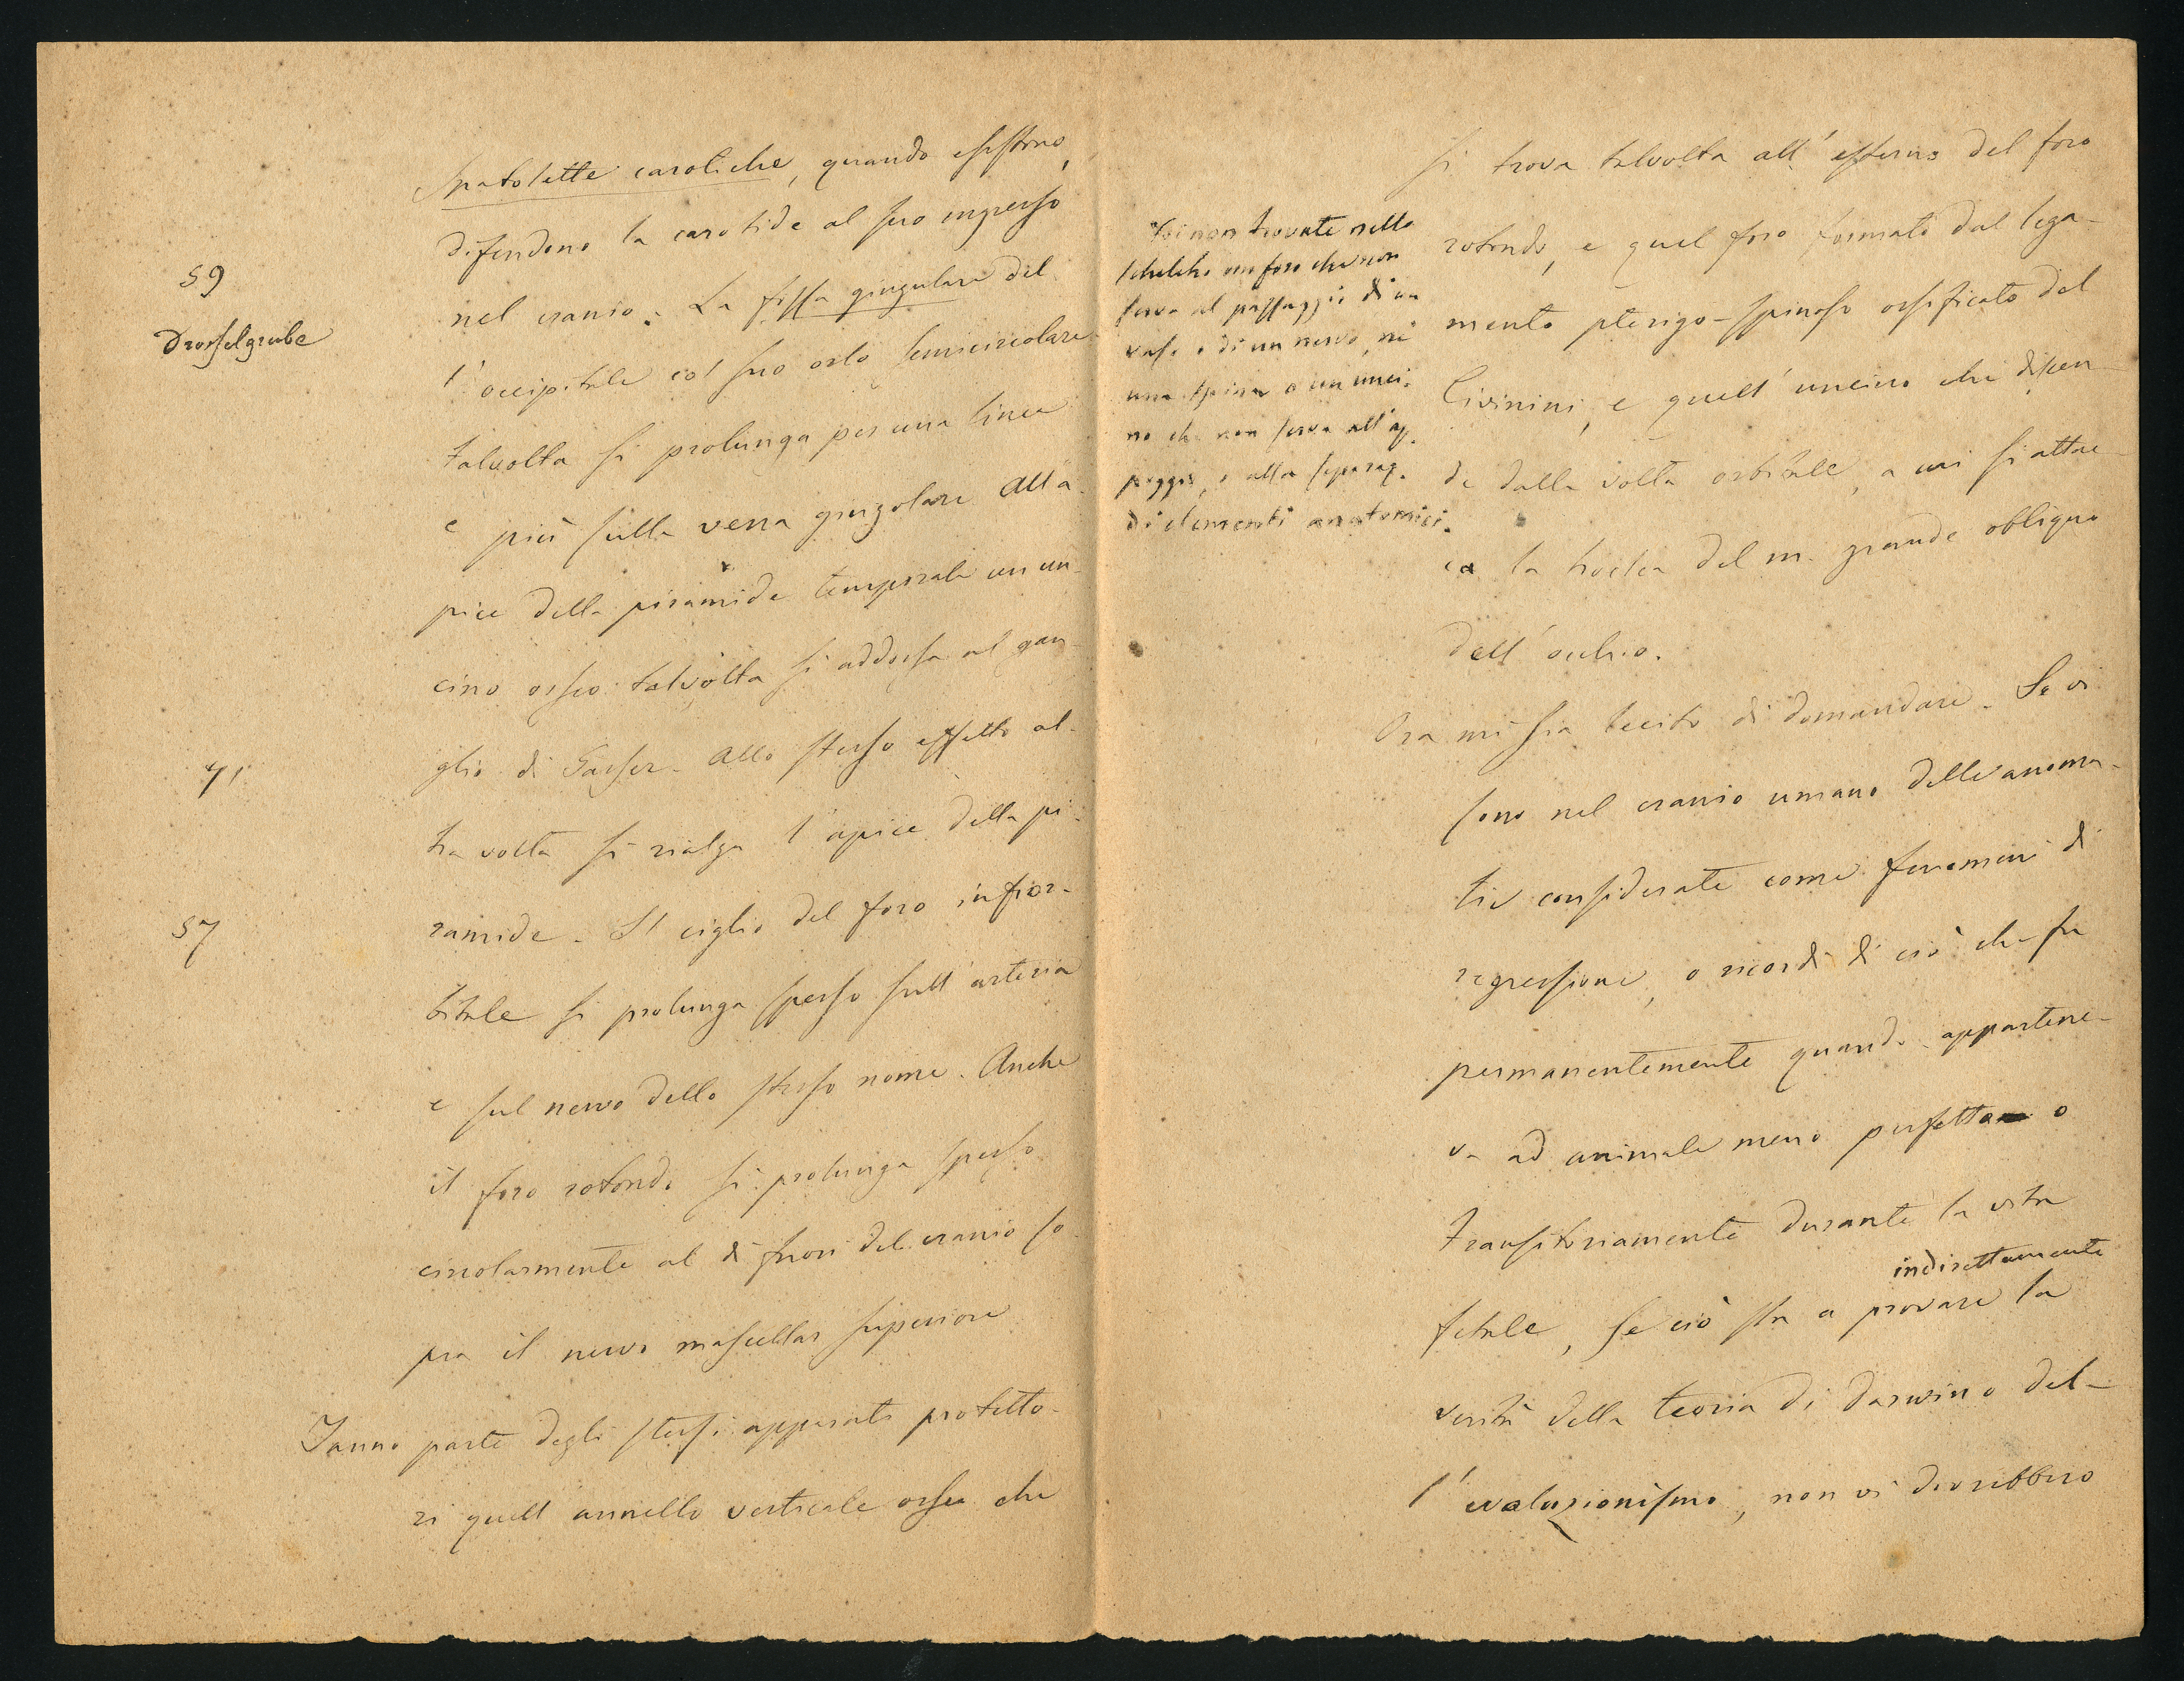 Spatolette carotiche, quando esistono,
difendono la carotide al suo ingresso
59
nel cranio. La fossa giugulare del
Drosselgrube
l'occipitale col suo orlo semicircolare
talvolta si prolunga per una linea
e più sulla vena giugolare. All'a-
pice della piramide temporale un un-
cino osseo talvolta si addossa al gan-
glio di Gasser. Allo stesso effetto al-
41
tra volta si rialza l'apice della pi-
57
ramide. Il ciglio del foro infior-
bitale si prolunga spesso sull'arteria
e sul nervo dello stesso nome. Anche
il foro rotondo si prolunga spesso
circolarmente al di fuori del cranio so-
pra il nervo mascellar superiore
Fanno parte degli stessi apparati protetto-
ri quell'annello verticale osseo che
si trova talvolta all'esterno del foro
rotondo, e quel foro formato dal lega-
mento pterigo-spinoso ossificato del
Civinini, e quell'uncino che discen-
de dalla volta orbitale, a cui si attac-
ca la troclea del m. grande obliquo
dell'occhio.
Voi non trovate nello
scheletro un foro che non
serva al passaggio di un
vaso o di un nervo, nè
una spina o un unci-
no che non serva all'ap-
poggio, o alla separaz.
di elementi anatomici.
Ora mi sia lecito di domandare. Se vi
sono nel cranio umano delle anoma-
lie considerate come fenomeni di
regressione, o ricordi di ciò che fu
permanentemente quando appartene-
va ad animale meno perfetto o
transitoriamente durante la vita
indirettamente
fetale, se ciò sta a provare la
verità della teoria di Darwin o del-
l'evoluzionismo, non vi dovrebbero